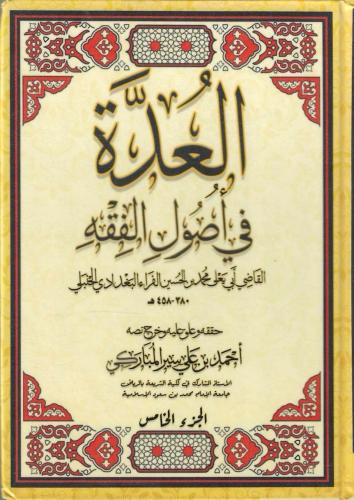 العُدَّة
في أُصُولِ الفِقْهِ
القاضي أبي يعلى محمد بن الحسين الفراء البغدادي الحنبلي
٣٨٠-٤٥٨ هـ
حققه وعلق عليه وخرج نصه
أحمد بن علي سير المباركي
الأستاذ المشارك في كلية الشريعة بالرياض
جامعة الإمام محمد بن سعود الإسلامية
الجزء الخامس